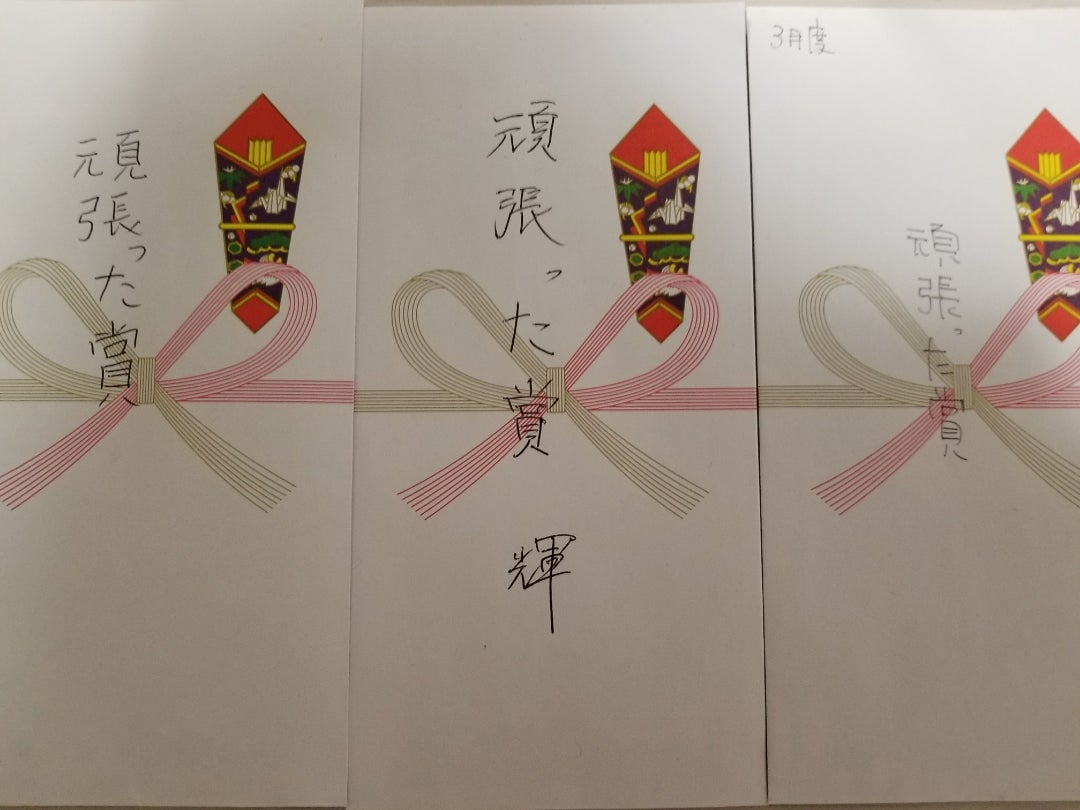 頑張った賞
頑張った賞
輝
3月度
頑張った賞